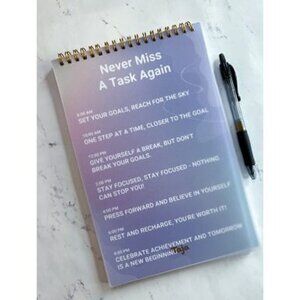 Never Miss
A Task Again
8:00 AM
SET YOUR GOALS, REACH FOR THE SKY
10:00 AM
ONE STEP AT A TIME, CLOSER TO THE GOAL
12:00 PM
GIVE YOURSELF A BREAK, BUT DON'T
BREAK YOUR GOALS.
2:00 PM
STAY FOCUSED, STAY FOCUSED - NOTHING
CAN STOP YOU!
4:00 PM
PRESS FORWARD AND BELIEVE IN YOURSELF
6:00 PM
REST AND RECHARGE, YOU'RE WORTH IT!
8:00 PM
CELEBRATE ACHIEVEMENT AND TOMORROW
IS A NEW BEGINNING